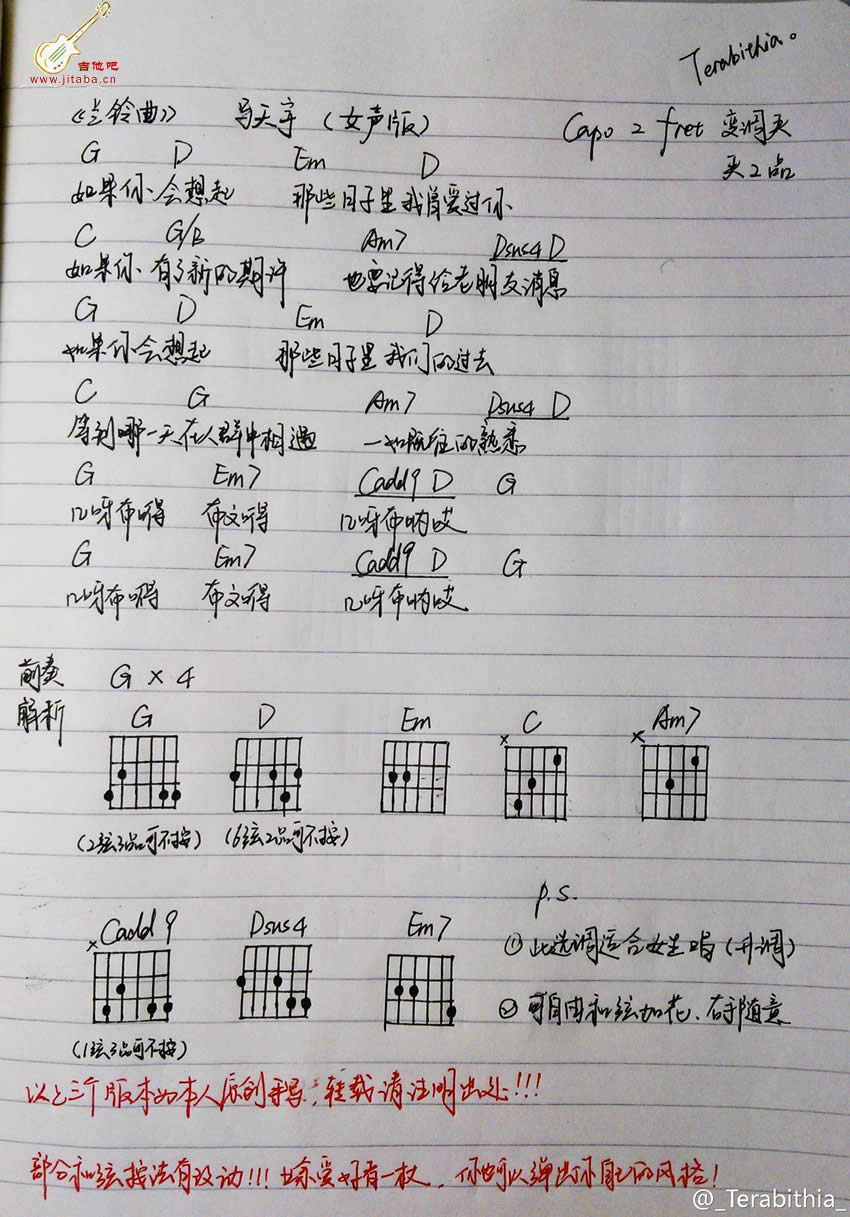 吉他吧
www.jitaba.cn
Terabithia。
《兰铃曲》 马天宇 (女声版) Capo 2 fret 变调夹
夹2品
G D Em D
如果你会想起 那些日子里我曾爱过你
C G/B Am7 Dsus4 D
如果你有了新的期许 也要记得给老朋友消息
G D Em D
如果你会想起 那些日子里我们的过去
C G Am7 Dsus4 D
等到哪一天在人群中相遇 一如既往的熟悉
G Em7 Cadd9 D G
几呀布嘚 布文嘚 几呀布呐哎
G Em7 Cadd9 D G
几呀布嘚 布文嘚 几呀布呐哎
前奏 G × 4
解析
G D Em C Am7
× ×
(2弦3品可不按) (6弦2品可不按)
p.s.
× Cadd9 Dsus4 Em7
① 此选调适合女生唱 (升调)
② 可自由和弦加花、右手随意
(1弦3品可不按)
以上三个版本如本人原创手写,转载请注明出处!!!
部分和弦按法有改动!!! 你也可以弹出你自己的风格!
@_Terabithia_